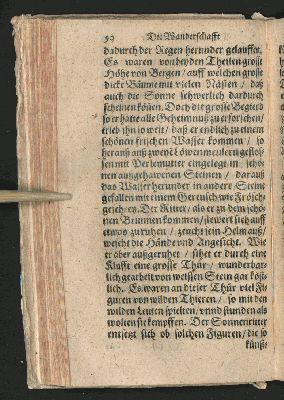 90 Die Wanderschafft
dadurch der Regen herunder gelauffen.
Es waren von beyden Theilen grosse
Höhe von Bergen / auff welchen grosse
dicke Bäume mit vielen Nästen / daß
auch die Sonne schwerlich dardurch
scheinen köñen. Doch die grosse Begierd
so er hatte alle Geheimnuß zu erforschen /
trieb ihn so weit / daß er endlich zu einem
schönen frischen Wasser kommen / so
herauß auß zweyẽ Löwenmeulern geflos-
sen mit Perlemutter eingelegt in schö-
nen außgehawenen Steinen / darauß
das Wasser herunder in andere Steine
gefallen mit einem Gereusch wie Frösch-
geschrey. Der Ritter / als er zu dem schö-
nen Brunnen kommen / steiget sich auff
etwas zuruhen / zeucht sein Helm auß /
wescht die Hände vnd Angesicht. Wie
er aber außgeruhet / sihet er durch eine
Klufft eine grosse Thür / wunderbar-
lich gearbeit von weissen Stein gar köst-
lich. Es waren an dieser Thür viel Fi-
guren von wilden Thieren / so mit den
wilden Leuten spielten / vnnd stunden als
wolten sie kempffen. Der Sonnenritter
entsetzt sich ob solchen Figuren / die so
künst-